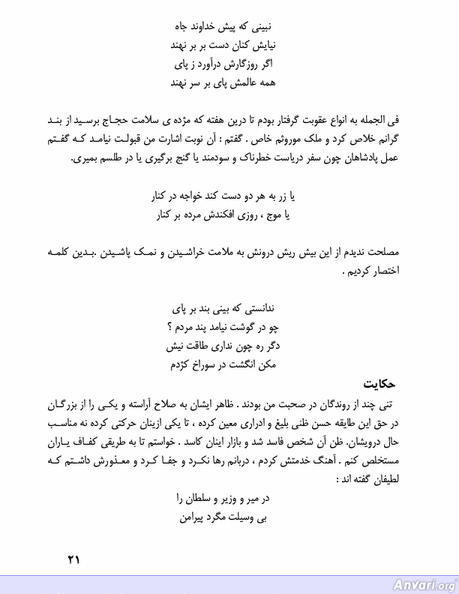 نبینی که پیش خداوند جاه
نیایش کنان دست بر بر نهند
اگر روزگارش درآورد ز پای
همه عالمش پای بر سر نهند
فی الجمله به انواع عقوبت گرفتار بودم تا درین هفته که مژده ی سلامت حجاج برسید از بند
گرانم خلاص کرد و ملک موروثم خاص . گفتم : آن نوبت اشارت من قبولت نیامد که گفتم
عمل پادشاهان چون سفر دریاست خطرناک و سودمند یا گنج برگیری یا در طلسم بمیری.
یا زر به هر دو دست کند خواجه در کنار
یا موج ، روزی افکندش مرده بر کنار
مصلحت ندیدم از این بیش ریش درونش به ملامت خراشیدن و نمک پاشیدن .بدین کلمه
اختصار کردیم .
ندانستی که بینی بند بر پای
چو در گوشت نیامد پند مردم ؟
دگر ره چون نداری طاقت نیش
مکن انگشت در سوراخ کژدم
حکایت
تنی چند از روندگان در صحبت من بودند . ظاهر ایشان به صلاح آراسته و یکی را از بزرگان
در حق این طایقه حسن ظنی بلیغ و ادراری معین کرده ، تا یکی ازینان حرکتی کرده نه مناسب
حال درویشان. ظن آن شخص فاسد شد و بازار اینان کاسد . خواستم تا به طریقی کفاف یاران
مستخلص کنم . آهنگ خدمتش کردم ، دربانم رها نکرد و جفا کرد و معذورش داشتم که
لطیفان گفته اند :
در میر و وزیر و سلطان را
بی وسیلت مگرد پیرامن
۲۱
Anvari.org